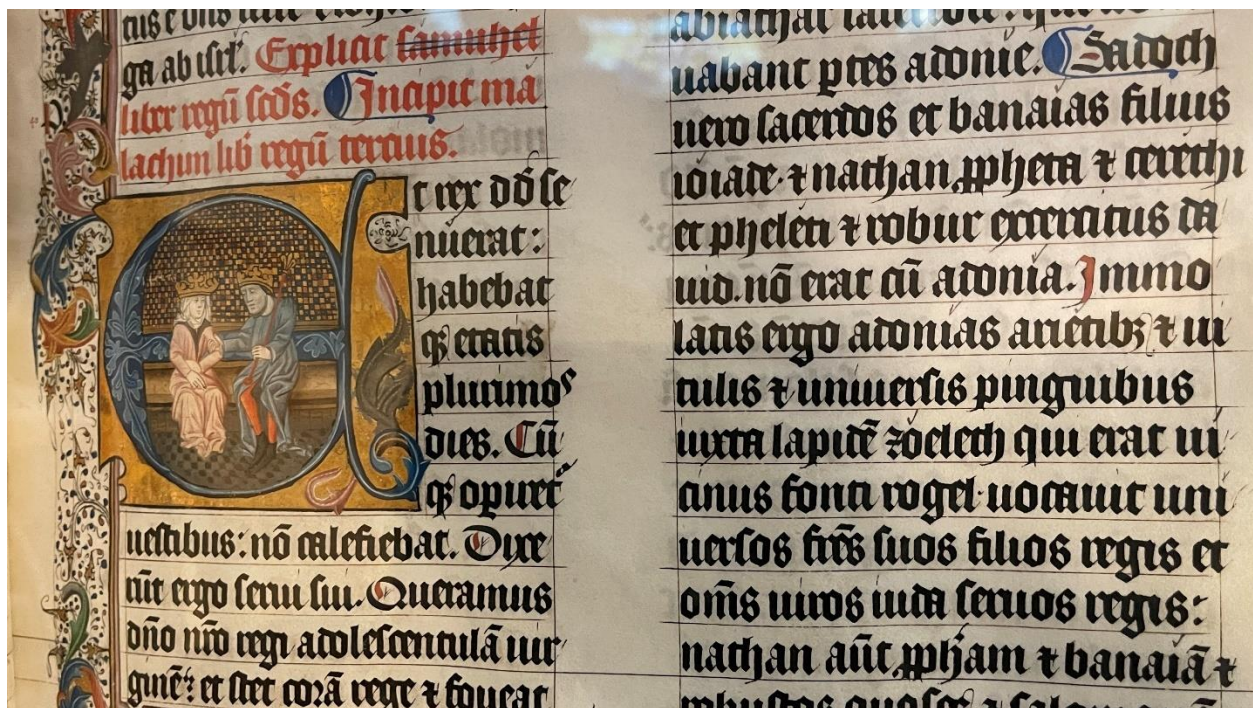 ga ab isrł. Explicit samuhel
liber regū scds. Incipit ma
lachim lib̄ regū tercius.
Et rex dd̄ se
nuerat:
habebat
qȝ etatis
plurimos
dies. Cū
qȝ opiret᷑
uestibus: nō calefiebat. Dixe
rūt ergo serui sui. Queramus
dn̄o nr̄o regi adolescentulā uir
ginē: et stet corā rege ⁊ foueat
uabant ꝑtes adonie. Sadoch
uero sacerdos et banaias filius
ioiade ⁊ nathan ꝓpheta ⁊ cerethi
et pheleti ⁊ robur exercitus da
uid. nō erat cū adonia. Immo
latis ergo adonias arietibȝ ⁊ ui
tulis ⁊ uniuersis pinguibus
iuxta lapidē zoeleth qui erat ui
cinus fonti rogel uocauit uni
uersos fr̄es suos filios regis et
om̄s uiros iuda seruos regis:
nathan aūt ꝓpham ⁊ banaiā ⁊